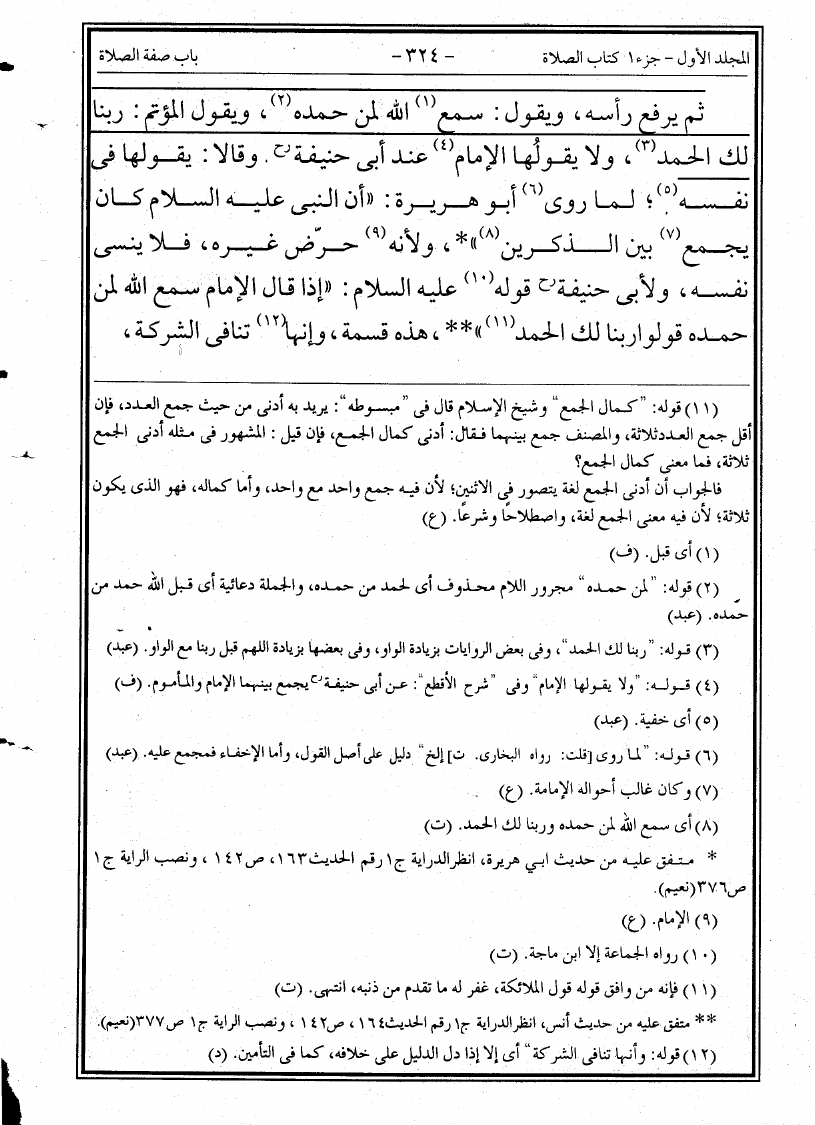 المجلد الأول - جزء ١ كتاب الصلاة - ٣٢٤ - باب صفة الصلاة
ثم يرفع رأسه، ويقول: سمع(١) الله لمن حمده(٢)، ويقول المؤتم: ربنا
لك الحمد(٣)، ولا يقولُها الإمام(٤) عند أبى حنيفةؒ. وقالا: يقولها فى
نفسه(٥)؛ لما روى(٦) أبو هريرة: «أن النبى عليه السلام كان
يجمع(٧) بين الذكرين(٨)»*، ولأنه(٩) حرّض غيره، فلا ينسى
نفسه، ولأبى حنيفةؒ قوله(١٠) عليه السلام: «إذا قال الإمام سمع الله لمن
حمده قولوا ربنا لك الحمد(١١)»**، هذه قسمة، وإنها(١٢) تنافى الشركة،
(١١) قوله: "كمال الجمع" وشيخ الإسلام قال فى "مبسوطه": يريد به أدنى من حيث جمع العدد، فإن
أقل جمع العدد ثلاثة، والمصنف جمع بينهما فقال: أدنى كمال الجمع، فإن قيل: المشهور فى مثله أدنى الجمع
ثلاثة، فما معنى كمال الجمع؟
فالجواب أن أدنى الجمع لغة يتصور فى الاثنين؛ لأن فيه جمع واحد مع واحد، وأما كماله، فهو الذى يكون
ثلاثة؛ لأن فيه معنى الجمع لغة، واصطلاحًا وشرعًا. (ع)
(١) أى قبل. (ف)
(٢) قوله: "لمن حمده" مجرور اللام محذوف أى لحمد من حمده، والجملة دعائية أى قبل الله حمد من
حمده. (عبد)
(٣) قوله: "ربنا لك الحمد"، وفى بعض الروايات بزيادة الواو، وفى بعضها بزيادة اللهم قبل ربنا مع الواو. (عبد)
(٤) قوله: "ولا يقولها الإمام" وفى "شرح الأقطع": عن أبى حنيفةؒ يجمع بينهما الإمام والمأموم. (ف)
(٥) أى خفية. (عبد)
(٦) قوله: "لما روى [قلت: رواه البخارى. ت] إلخ" دليل على أصل القول، وأما الإخفاء فمجمع عليه. (عبد)
(٧) وكان غالب أحواله الإمامة. (ع)
(٨) أى سمع الله لمن حمده وربنا لك الحمد. (ت)
* متفق عليه من حديث ابي هريرة، انظر الدراية ج١ رقم الحديث١٦٣، ص١٤٢، ونصب الراية ج١
ص٣٧٦(نعيم).
(٩) الإمام. (ع)
(١٠) رواه الجماعة إلا ابن ماجة. (ت)
(١١) فإنه من وافق قوله قول الملائكة، غفر له ما تقدم من ذنبه، انتهى. (ت)
** متفق عليه من حديث أنس، انظر الدراية ج١ رقم الحديث١٦٤، ص١٤٢، ونصب الراية ج١ ص٣٧٧(نعيم).
(١٢) قوله: وأنها تنافى الشركة" أى إلا إذا دل الدليل على خلافه، كما فى التأمين. (د)